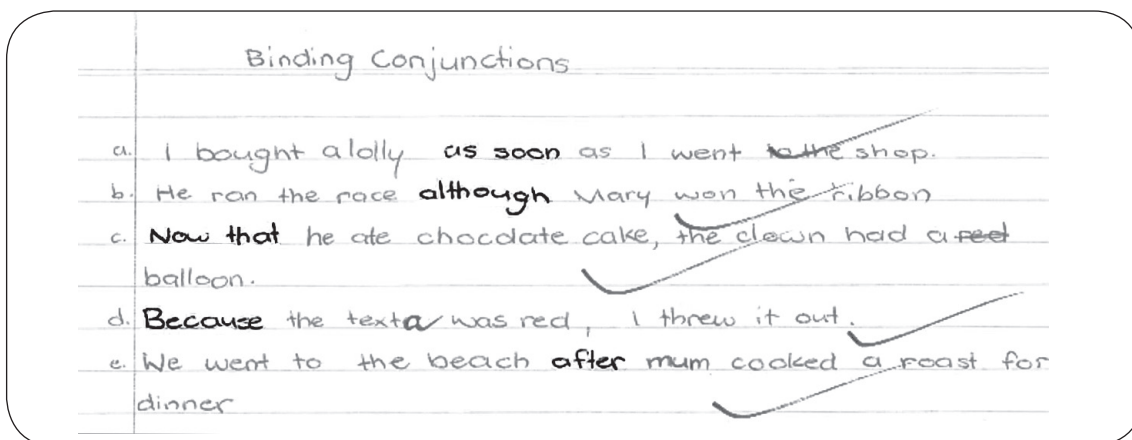 Binding Conjunctions
a. I bought a lolly as soon as I went to the shop.
b. He ran the race although Mary won the ribbon
c. Now that he ate chocolate cake, the clown had a red
balloon.
d. Because the texta was red, I threw it out.
e. We went to the beach after mum cooked a roast for
dinner